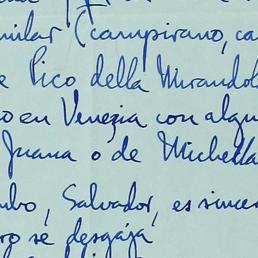 milar (campirano, ca
e Pico della Mirandol
o en Venezia con algu
Juana o de Michella
mbo, Salvador, es since
ro se desgaja